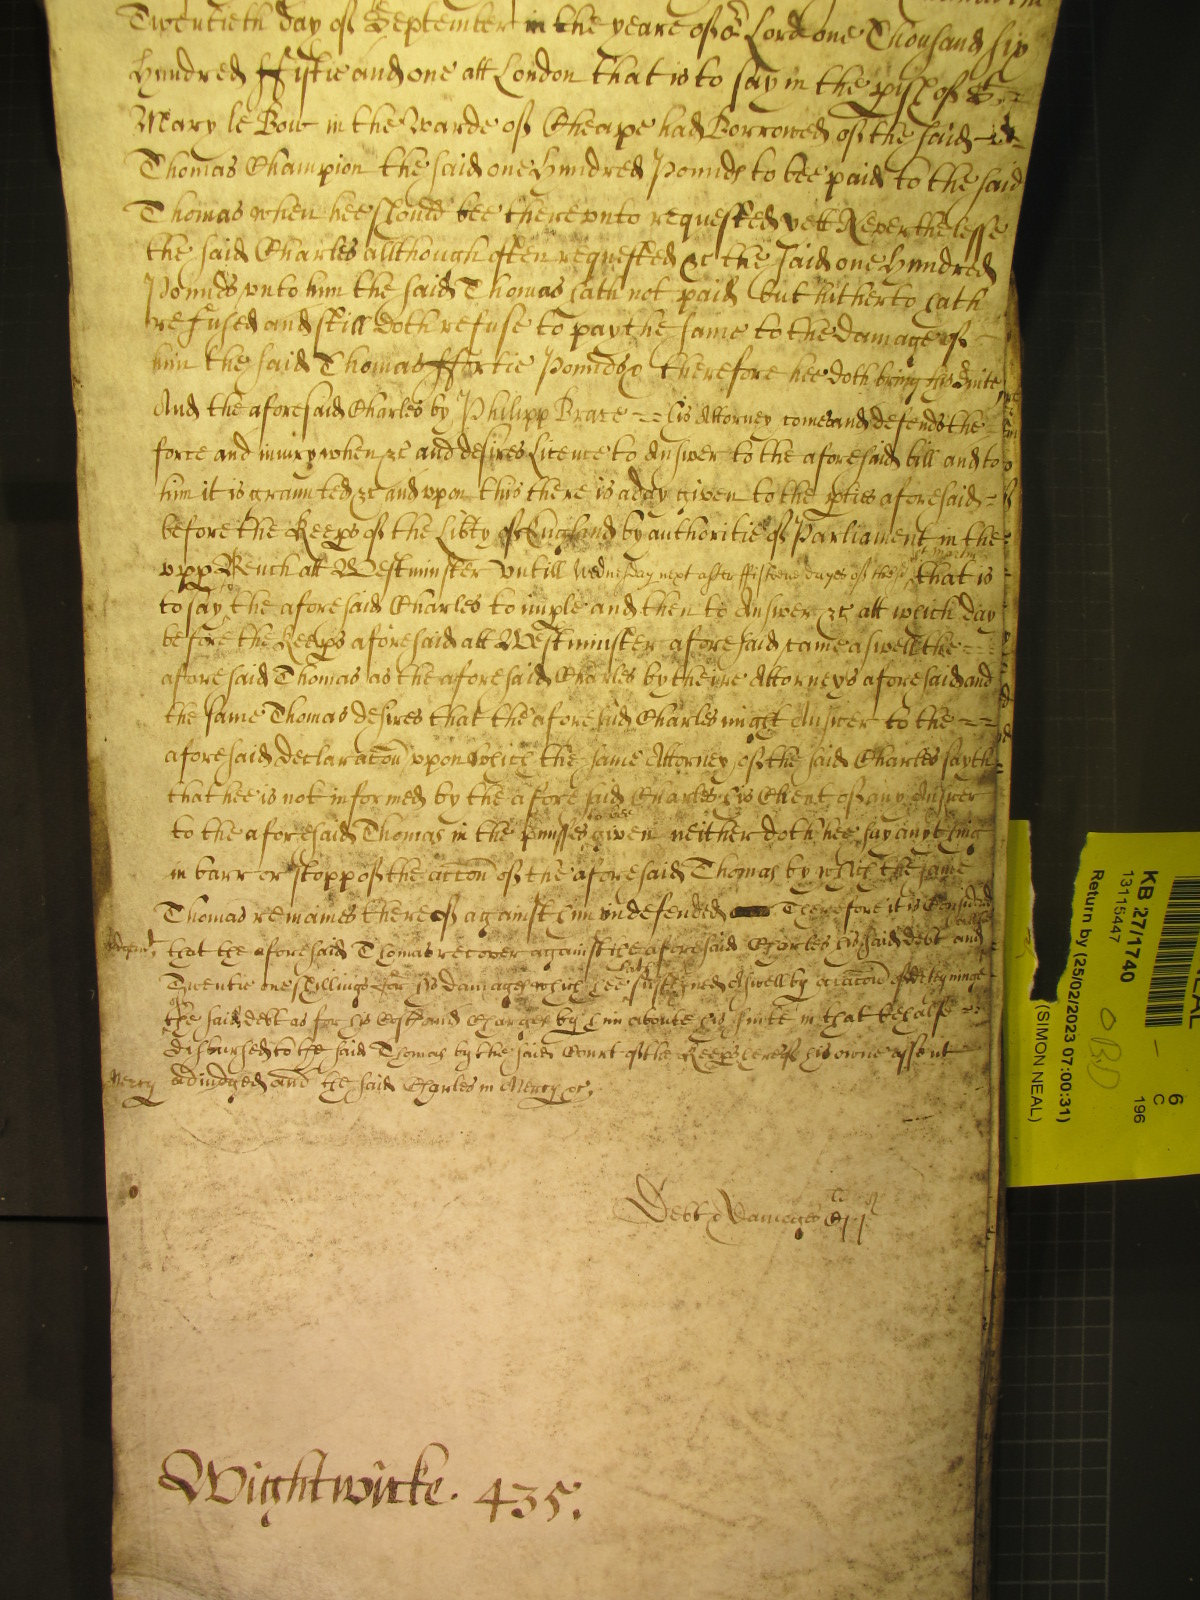 Twentieth day of September in the yeare of or Lord one Thousand six
hundred ffiftie and one att London that is to say in the pish of St
Mary le Bow in the Warde of Cheape had Borrowed of the said
Thomas Champion the said one hundred Pounds to bee paid to the said
Thomas when hee should bee thereunto requested yett Neverthelesse
the said Charles allthough often requested &c the said one hundred
Pounds unto him the said Thomas hath not paid but hitherto hath
refused and still doth refuse to pay the same to the damage of
him the said Thomas ffortie Pounds & therefore hee doth bring his suite
And the aforesaid Charles by Philipp Brace his Attorney comes and defends the
force and iniury when &c and desires Licence to Answer to the aforesaid bill and to
him it is graunted &c and upon this there is a day given to the pties aforesaid
before the Keeps of the Libty of England by authoritie of Parliament in the
upp Bench att Westminster untill Wednesday next after ffifteene dayes of St Martin that is
to say the aforesaid Charles to imple and then to Answer &c att which day
before the Keeps aforesaid att Westminster aforesaid came aswell the
aforesaid Thomas as the aforesaid Charles by theire Attorneys aforesaid and
the same Thomas desires that the aforesaid Charles might Answer to the
aforesaid declaracon upon which the same Attorney of the said Charles sayth
that hee is not informed by the aforesaid Charles his Client of any Answer
to the aforesaid Thomas in the pmisses to bee given neither doth hee say anything
in barr or stopp of the accon of the aforesaid Thomas by which the same
Thomas remaines thereof against him undefended Therefore it is Considered
that the aforesaid Thomas recover against the aforesaid Charles his said debt and
Twentie one shillings for his damages which hee hath susteyned Aswell by occacon of deteyninge
of the said debt as for his Costs and Charges by him aboute his suite in that behalfe
disbursed to the said Thomas by the said Court of the Keeps here of his owne assent
Mercy adiudged and the said Charles in Mercy &c.
Debt & Damages
Wightwicke. 435.
KB 27/1740
13115447
Return by (25/02/2023 07:00:31)
(SIMON NEAL)
6
C
196